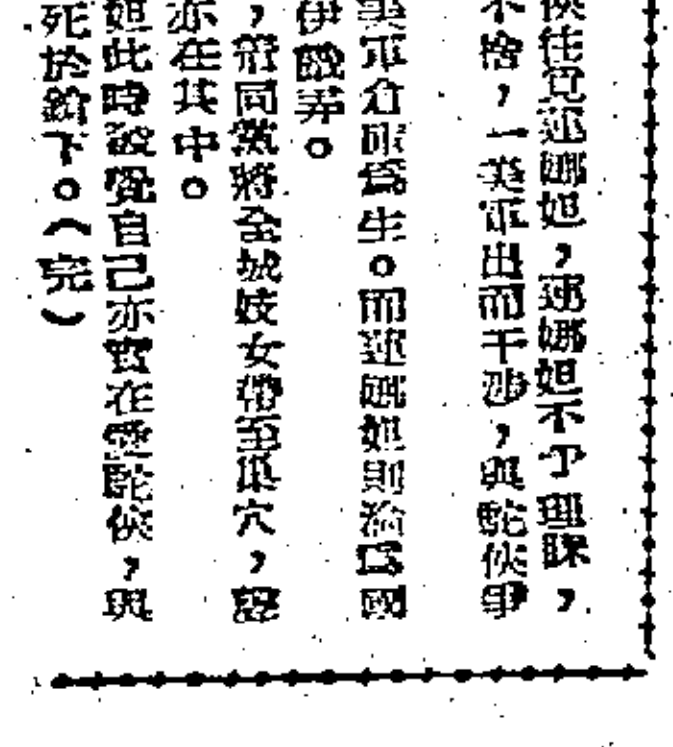 俠往覓蓮娜妲，蓮娜妲不予理睬，
不捨，一美軍出而干涉，與駝俠爭
美軍倉庫爲生。而蓮娜妲則淪爲國
伊戲弄。
，密同黨將全城妓女帶至巢穴，
亦在其中。
妲此時發覺自己亦實在愛駝俠，與
死於鎗下。（完）